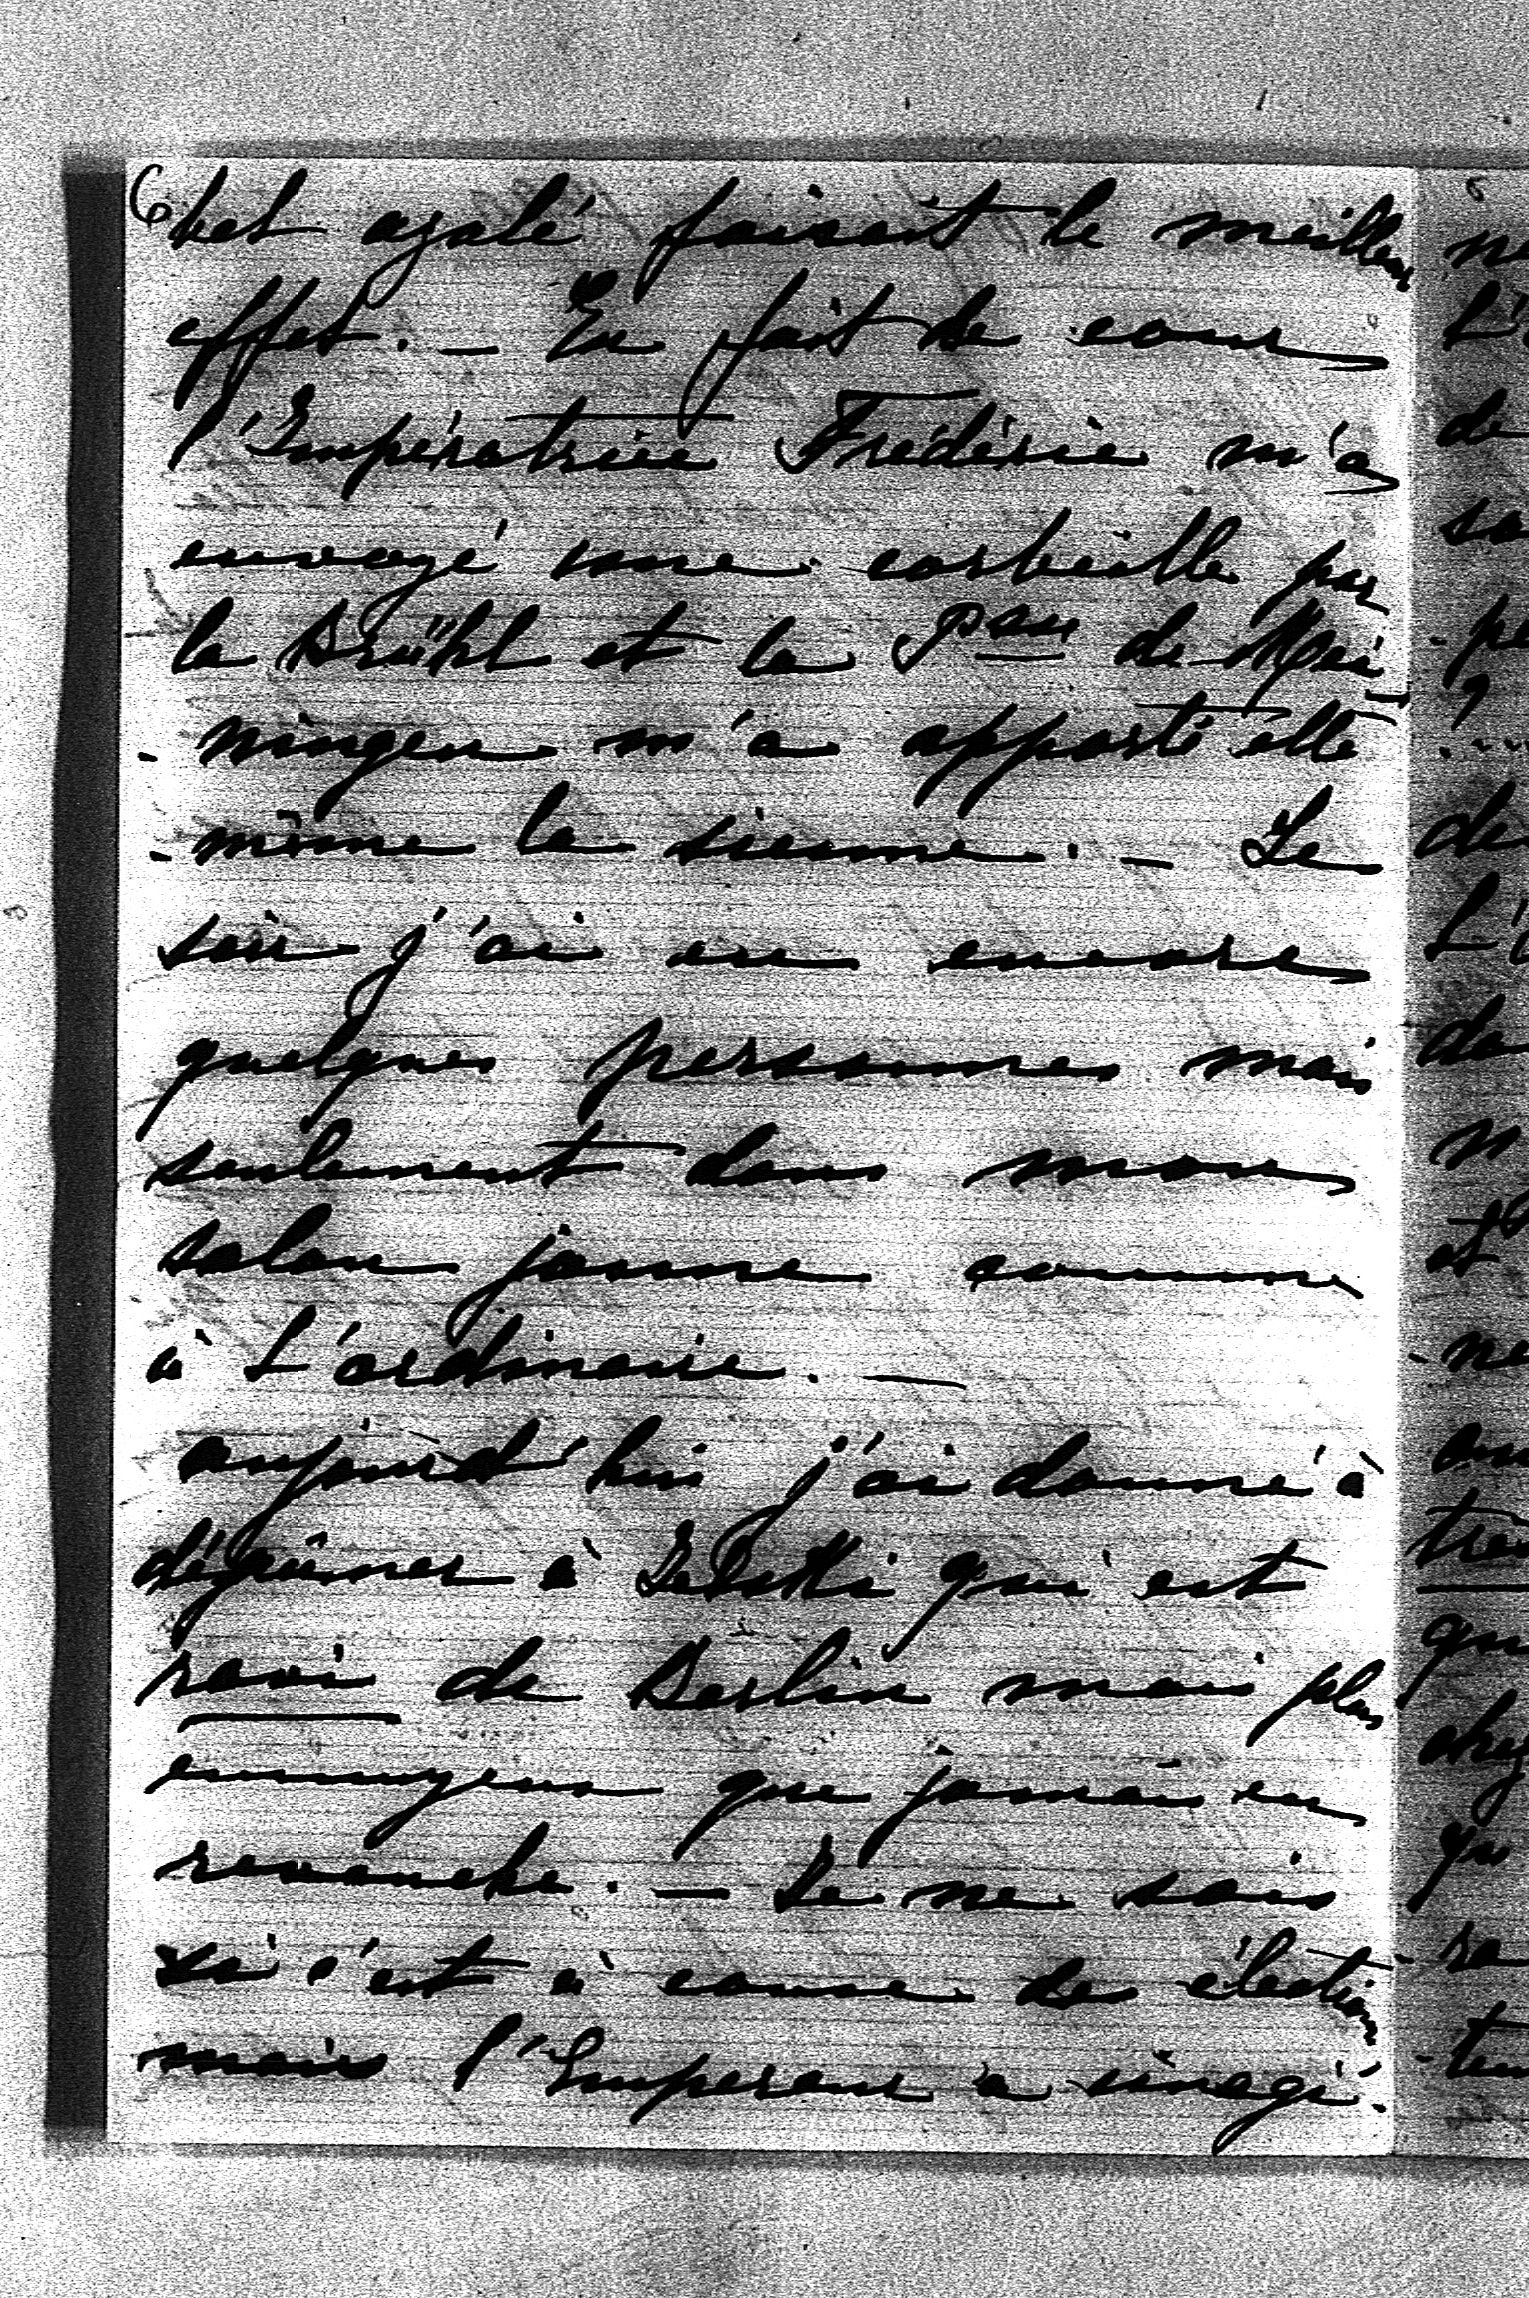 6
bet azalé faisait le meilleur
effet. — En fait de cour
l'Impératrice Frédéric m'a
envoyé une corbeille par
la Brühl et la Psse de Mei
- ningen m'a apporté elle
- même la sienne. — Le
soir j'ai eu encore
quelques personnes mais
seulement dans mon
salon jaune comme
à l'ordinaire. —
aujourd'hui j'ai donné à
déjeûner à qui est
ravi de Berlin mais plus
ennuyeux que jamais en
revanche. — Je ne sais
si c'est à cause des élections
mais l'Empereur a imagi-